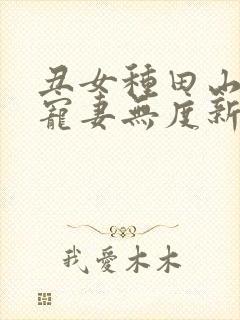 丑女種田山
寵妻無度新
我愛木木